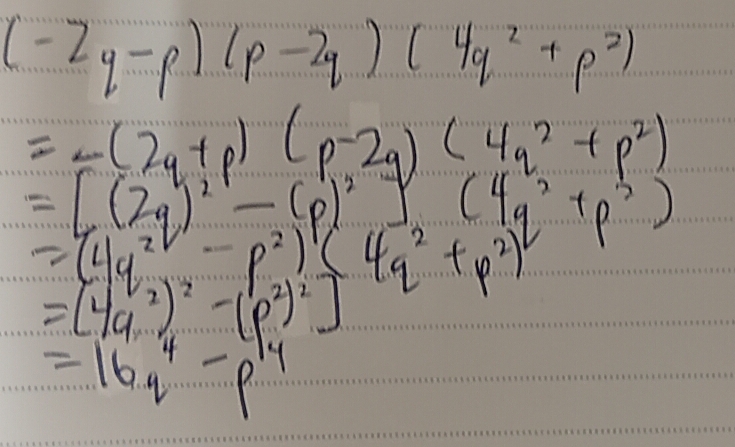 (-2q-p)(p-2q)(4q²+p²)
=-(2q+p)(p-2q)(4q²+p²)
=[(2q)²-(p)²](4q²+p²)
=(4q²-p²)(4q²+p²)
=(4q²)²-(p²)²]
=16q⁴-p⁴